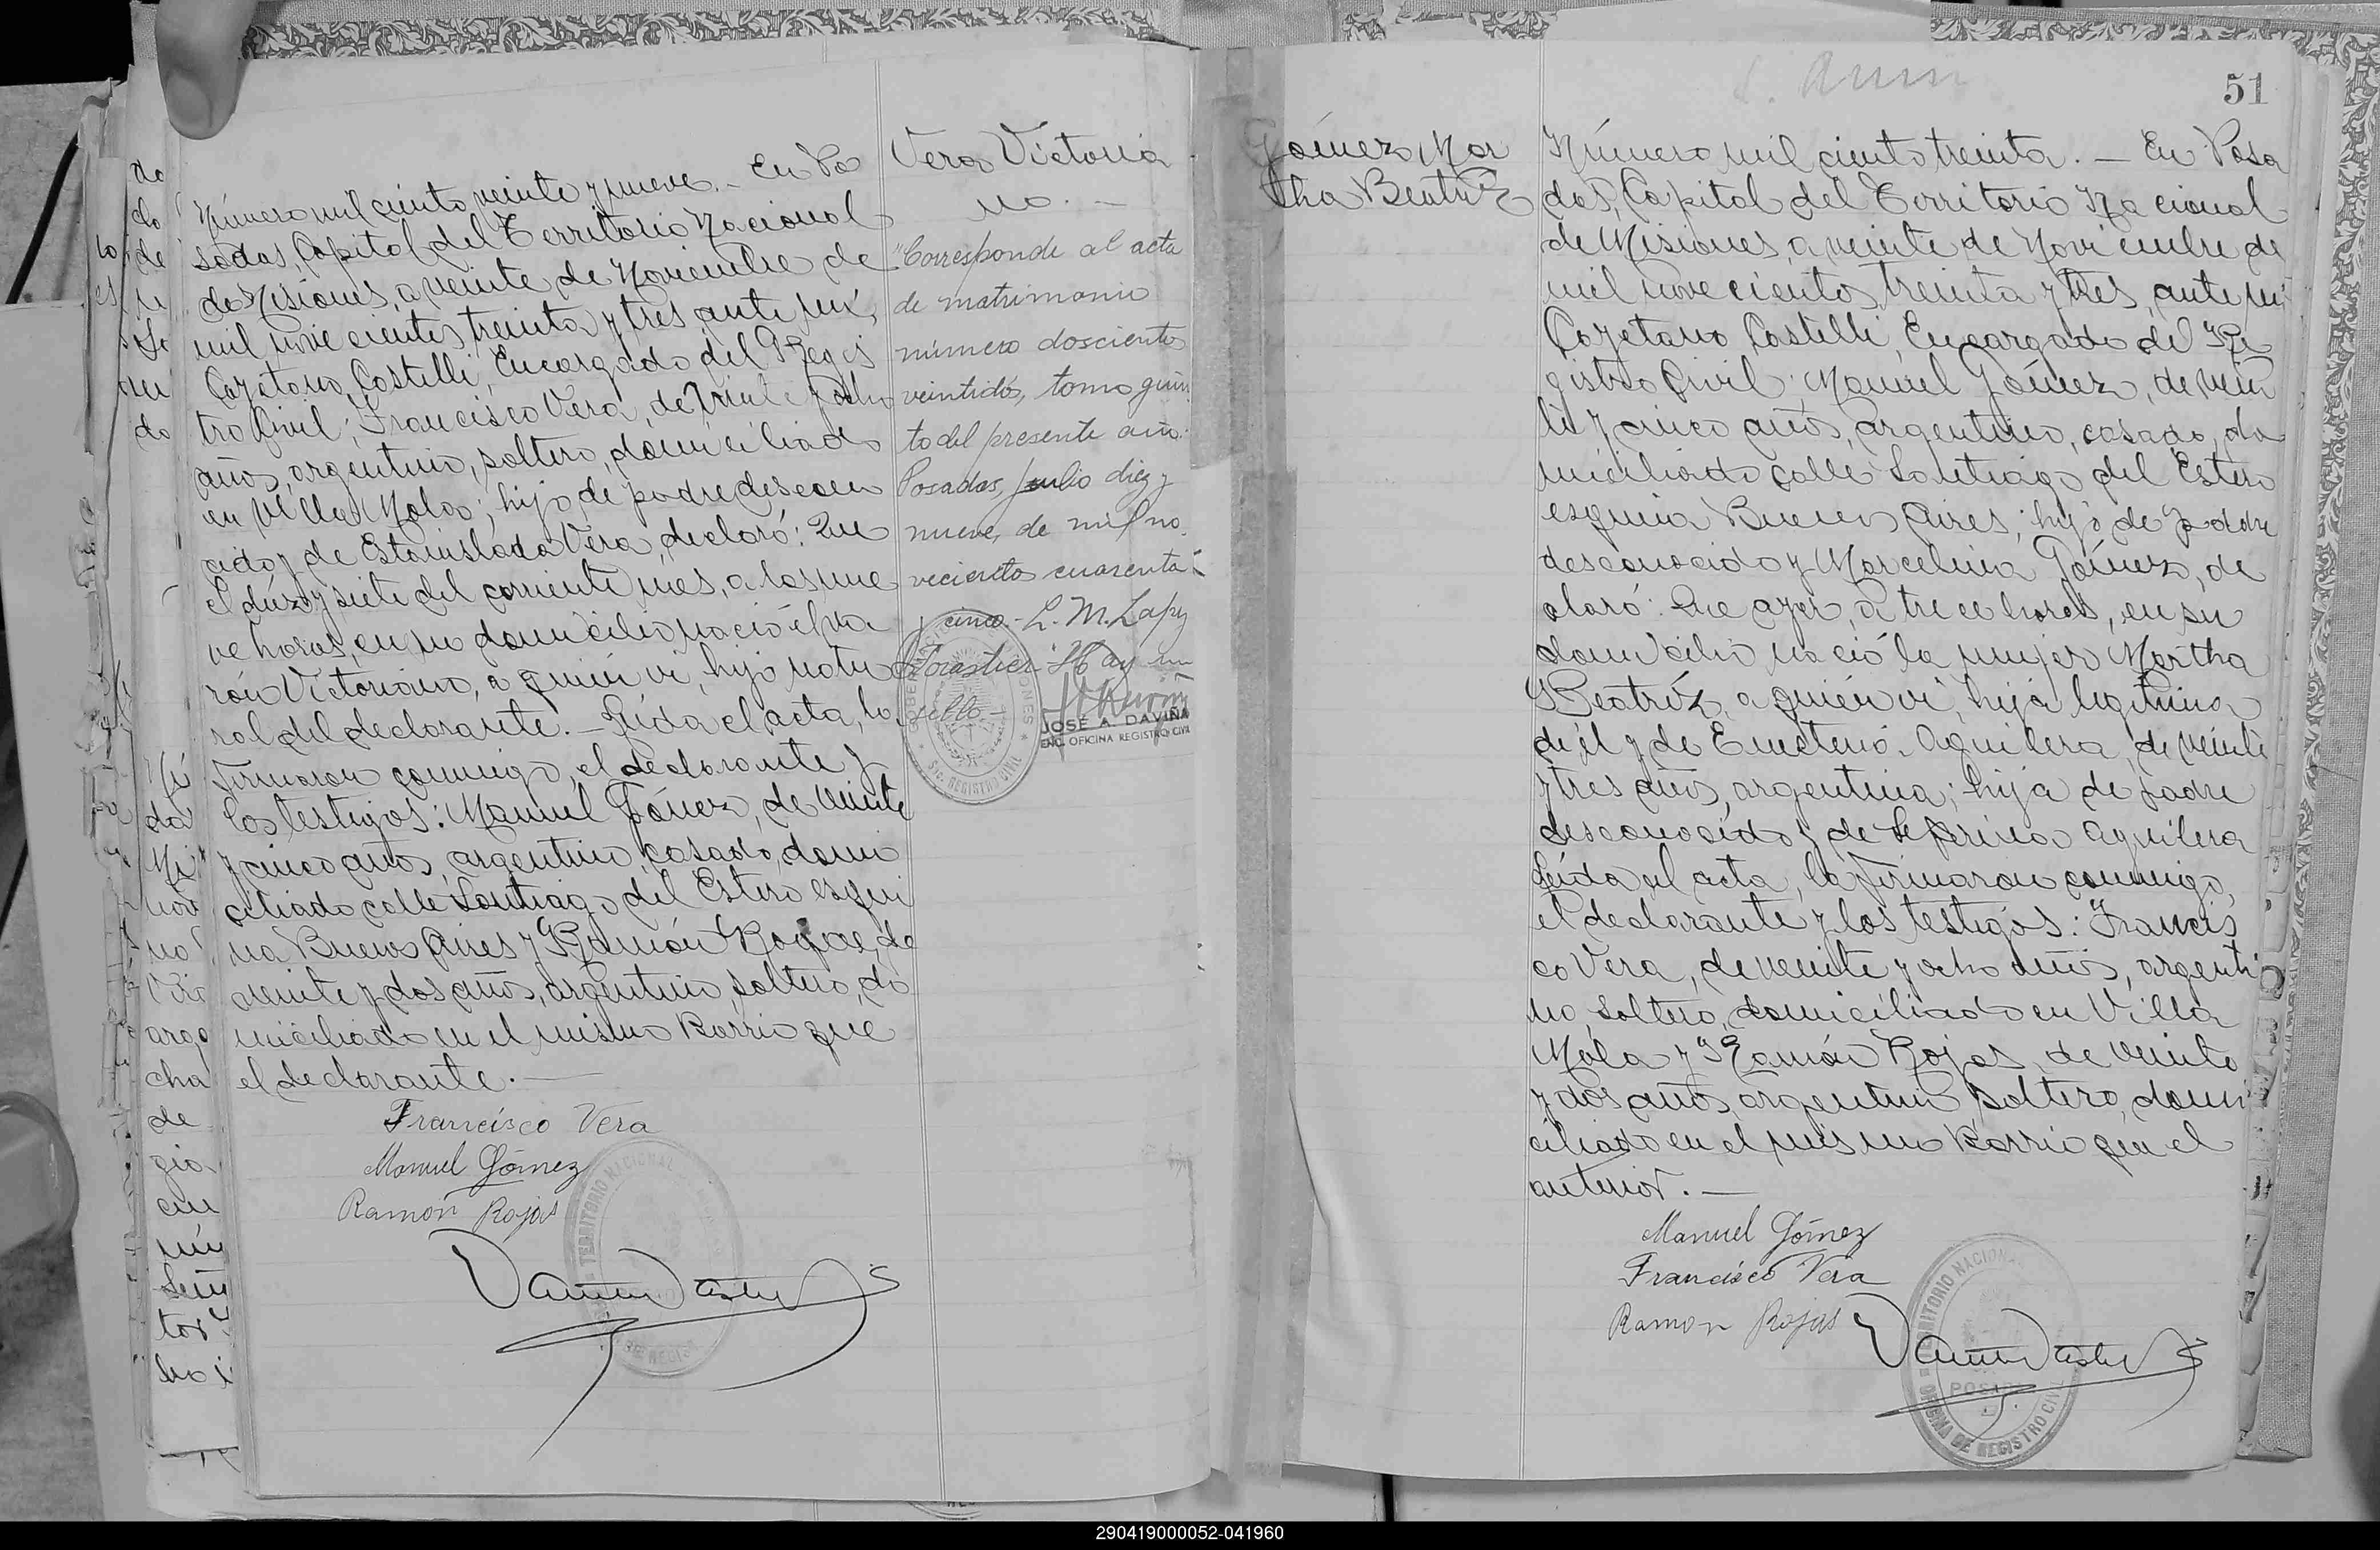 Vera Victoria
no. —
"Corresponde al acta
de matrimonio
número doscientos
veintidós, tomo quin
to del presente año.
Posadas, julio diez y
nueve, de mil no
vecientos cuarenta
y cinco.- L. M. Lapez
Forastier- Hay un
sello
JOSÉ A. DAVIÑA
ENC. OFICINA REGISTRO CIVIL
Número mil ciento veinte y nueve. — En Po
sadas, Capital del Territorio Nacional
de Misiones, a veinte de Noviembre de
mil novecientos treinta y tres, ante mi,
Cayetano Castelli, Encargado del Regis
tro Civil; Francisco Vera, de veinte y ocho
años, argentino, soltero, domiciliado
en Villa Mola; hijo de padre descono
cido y de Estanislada Vera, declaró: Que
el diez y siete del corriente mes, a las nue
ve horas, en su domicilio nació el va
rón Victoriano, a quien vi, hijo natu
ral del declarante. — Leída el acta, la
firmaron conmigo, el declarante y
los testigos: Manuel Gómez, de veinte
y cinco años, argentino, casado, domi
ciliado calle Santiago del Estero esqui
na Buenos Aires y Ramón Rojas, de
veinte y dos años, argentino, soltero, do
miciliado en el mismo Barrio que
el declarante. —
Francisco Vera
Manuel Gómez
Ramón Rojas
51
Gómez Mar
tha Beatriz
Número mil ciento treinta. — En Posa
das, Capital del Territorio Nacional
de Misiones, a veinte de Noviembre de
mil novecientos treinta y tres, ante mi
Cayetano Castelli, Encargado del Re
gistro Civil; Manuel Gómez, de vein
te y cinco años, argentino, casado, do
miciliado calle Santiago del Estero
esquina Buenos Aires; hijo de padre
desconocido y Marcelina Gómez, de
claró: Que ayer, a trece horas, en su
domicilio nació la mujer Martha
Beatríz, a quién vi, hija legítima
de él y de Emeteria Aguilera, de veinte
y tres años, argentina; hija de padre
desconocido y de Seferina Aguilera
Leída el acta, la firmaron conmigo,
el declarante y los testigos: Francis
co Vera, de veinte y ocho años, argenti
no, soltero, domiciliado en Villa
Mola y Ramón Rojas, de veinte
y dos años, argentino, soltero, domi
ciliado en el mismo Barrio que el
anterior. —
Manuel Gómez
Francisco Vera
Ramon Rojas
TERRITORIO NACIONAL
POSADAS
OFICINA DE REGISTRO CIVIL
290419000052-041960